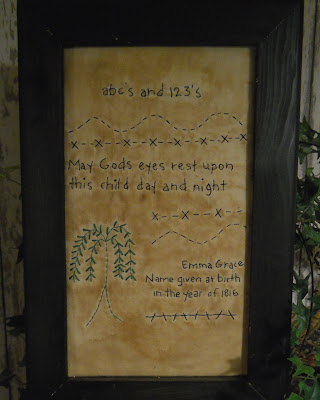 abc's and 123's
May Gods eyes rest upon
this child day and night
Emma Grace
Name given at birth
in the year of 1816